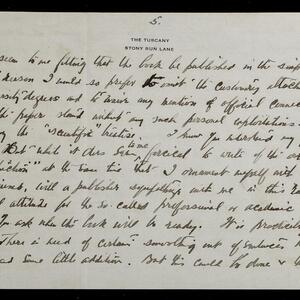 5.
THE TUSCANY
STONY RUN LANE
seem to me fitting that the book be published in the
reason I would so prefer to omit the customary
degrees and to waive any mention of official
the paper stand without any such personal
the "scientific" treatise. I know you understand my
But while it does seem to me farcical to write of the
at the same time that I ornament myself with
will a publisher sympathize with me in this
attitude for the so-called professional or academic
You ask when the book will be ready. It is practically
there is need of certain smoothing out of sentences
and some little addition. But this could be done